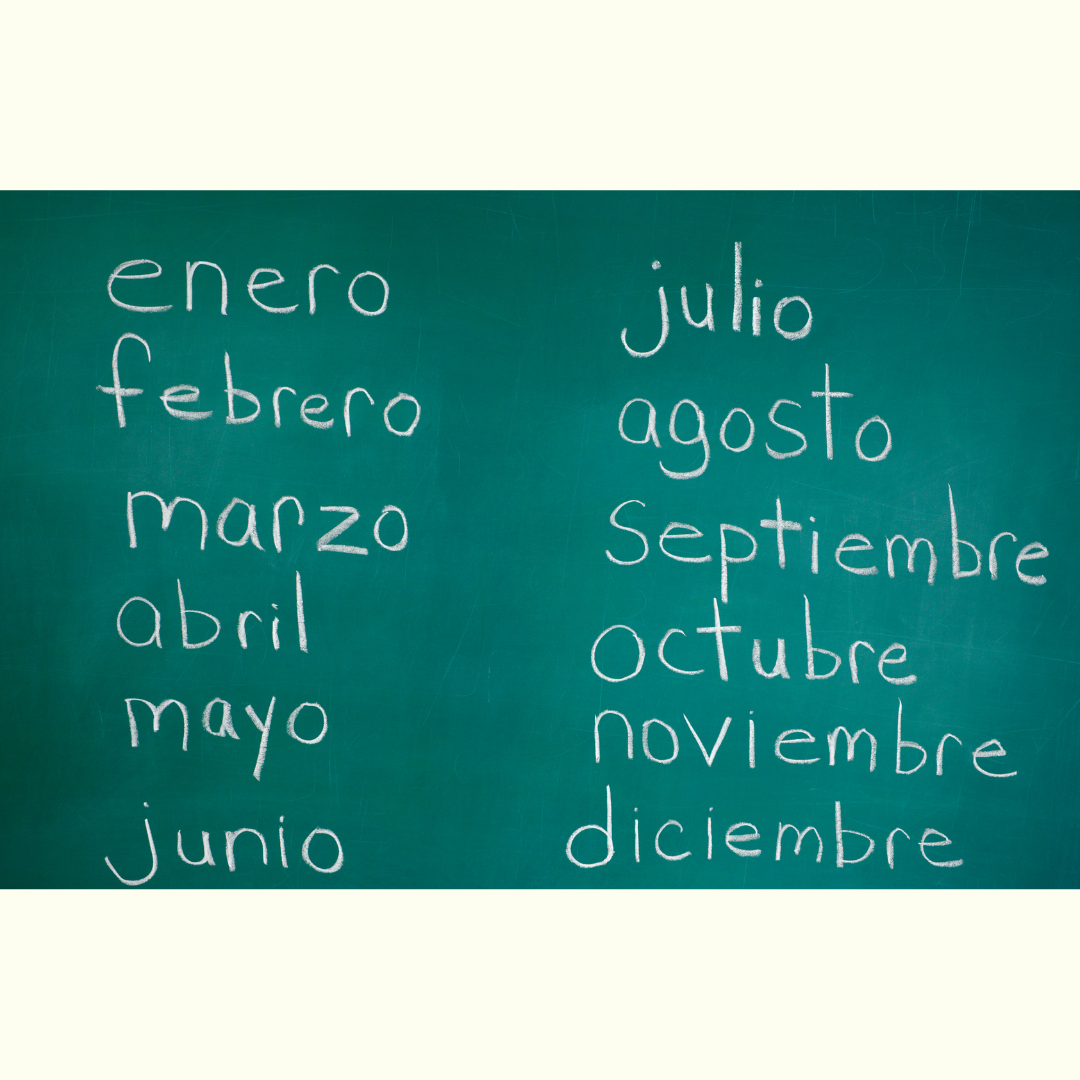 enero
febrero
marzo
abril
mayo
junio
julio
agosto
septiembre
octubre
noviembre
diciembre